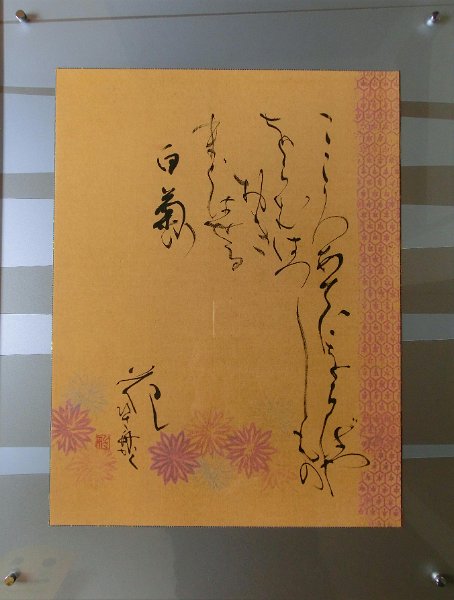 こころあてにをらばや
をらむはつしもの
おき
まどはせる
白菊
花